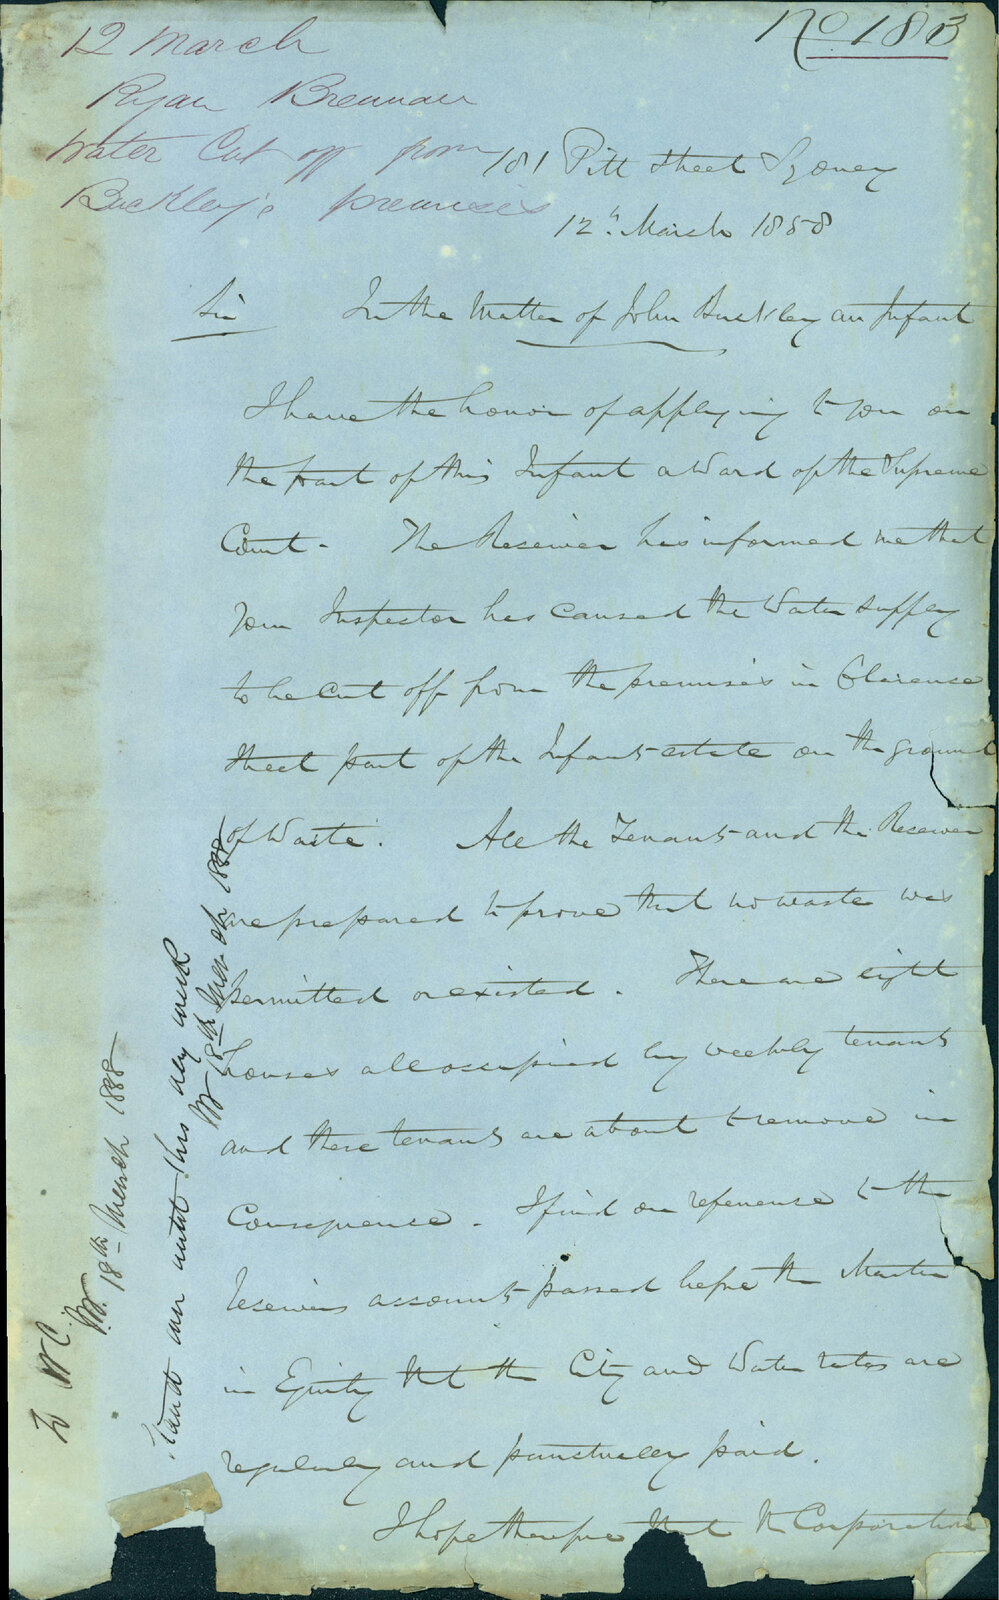 No 183
12 March
Ryan Brennan
Water Cut off from
Buckley's premises
181 Pitt Street Sydney
12th March 1858
Sir In the Matter of John Buckley an Infant
I have the honor of applying to you on
the part of this Infant a Ward of the Supreme
Court - The Receiver has informed me that
your Inspector has caused the Water supply
to be cut off from the premises in Clarence
Street part of the Infants estate on the ground
of Waste. All the Tenants and the Receiver
are prepared to prove that no waste was
permitted or existed. There are eight
houses all occupied by weekly tenants
and these tenants are about to remove in
Consequence. I find on reference to the
Receivers accounts passed before the Master
in Equity that the City and Water rates are
regularly and punctually paid.
I hope therefore that the Corporation
To WC.
18th March 1858
Stand over until this day week
18th March 1858